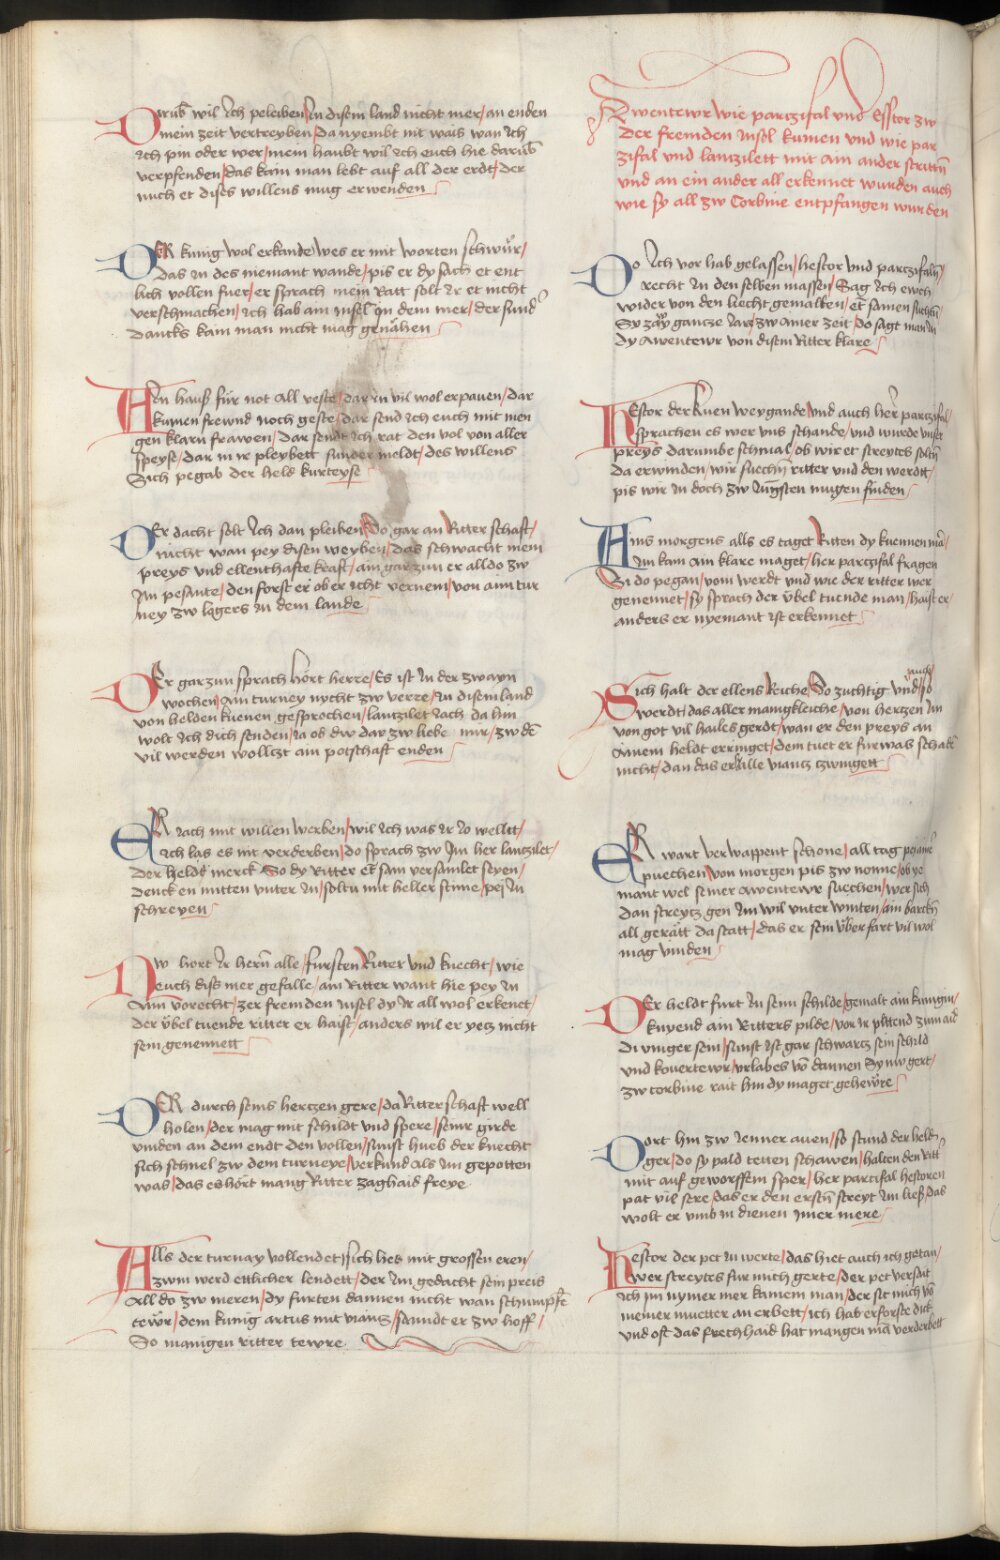 Darub wil Ich peleiben / In disem land nicht mer / an enden
mein zeit vertreyben / da nyembt nit wais wan Ich
ich pin oder wer / mein haubt wil ich euch hie darub
verpfenden / das kain man lebt auf all der erdt / der
mich et dises willens mug erwenden
DER kunig wol erkande / wes er mit worten schwur /
das in des niemant wande / pis er dy sach et ent
lich vollen fuer / er sprach mein Ratt solt ir et nicht
verschmachen / ich hab ain Insel in dem mer / der sund
dancks kain man nicht mag genahen
Ain hauß für not all veste / dar In vil wol erpauen / dar
kumen frewnd noch geste / dar send ich euch mit men
gen klarn frawen / dar sendt ich rat den vol von aller
speys / dar in ir pleybett sunder meldt / des willens
Sich pegab der held kurteyse
DEr dacht solt Ich dan pleiben / Do gar an Ritterschaft /
nicht wan pey disen weyben / das schwacht mein
preys und ellenthafte kraft / ain garzun er alldo zw
Im pesante / den forst er ob er icht vernem / von aim tur
ney zw lagers in dem lande
DEr garzun sprach hort herre / Es ist In der zwayn
wochen / ain turney nycht zw verre / In disem land
von helden kuenen gesprochen / lantzilet iach da hin
wolt ich dich senden / ia ob dw dar zw liebe mir / zw de
vil werden wollest ain potschaft enden
ER iach mit willen werben / wil ich was ir io wellet /
ich las es nit verderben / do sprach zw Im her lantzilet /
der helds merck So dy Ritter et sam versamlet seyen /
denck en mitten unter In / soltu mit heller stime / pej In
schreyen
NW hort Ir hern alle / fursten Ritter und knecht / wie
euch dis mer gefalle / ain Ritter want hie pey in
Aim vorecht / zer fremden Insel dy ir all wol erkenet /
der ubel tuende ritter er haist / anders wil er yetz nicht
sein genennett
DER durch seins hertzen gere / da Ritterschaft well
holen / der mag mit schildt und spere / seinr girde
vinden an dem endt den vollen / sunst hueb der knecht
sich schnel zw dem turneye / verkund als im gepotten
was / das es hört mang Ritter zaghaid freye
Alls der turnay vollendet / sich het mit grossen eren /
zwm werd ettlicher lendett / der Im gedacht sein preis
All do zw meren / dy furten dannen nicht wan schumpfe
tewr / dem kunig artus mit vianz / sanndt er zw hoff /
So manigen ritter tewre
Awentewr wie partzifal und Esstor zw
der fremden Insel kumen und wie par
zifal und lantzilett mit ain ander stritten
und an ein ander all erkennet wurden auch
wie sy all zw Corbine entpfangen wurden
DO Ich vor hab gelassen / hestor und partzifaln /
recht In den selben massen / Sag ich ewch
wider von den liecht gemalten / et samen suechen
Sy zway gantze Iar / zw ainer zeit / do sagt man In
dy awentewr von disem Ritter klare
HEstor der kuen weygande / und auch her partzifal /
sprachen es wer uns schande / und wurde unser
preys darumbe schmal / ob wir et streytes soltn
da erwinden / wir suechn ritter und den werdt /
pis wir In doch zw Iungsten mugen finden
Ains morgens alls es taget / Ritten dy kuennen ma /
Im kam ain klare maget / her partzifal fragen
Si do pegan / vom werdt und wie der ritter wer
genennet / sy sprach der ubel tuende man / haist er /
anders er nyemant ist erkennet
Sich halt der ellens Reiche / So zuchtig und auch so
werdt / das aller manigkleiche / von hertzen Im
von got vil hailes gerdt / wan er den preys an
Ainem heldt erringet / dem tuet er furwas schade
nicht / dan das er alle vianz tzwingett
ER wart verwappent schone / all tag pej aine
puechen / von morgen pis zw none / ob ye
mant wel seiner awentewr suechen / wer sich
dan streytz gen Im wil unter winten / ain barckn
all gerätt da statt / das er sein uberfart vil wol
mag vinden
DEr heldt furt In seim schilde / gemalt ain kunigin /
knyend ain Ritters pilde / vor ir pittend zwm aid
Di vinger sein / sunst ist gar schwartz sein schild
und kovertewr / urlabes vo dannen Sy nw gert /
zw corbine rait hin dy maget gehewre
DOrt hin zw Ienner auen / so stund der helt
ger / do sy pald teten schawen / halten den ritt
mit auf geworffem sper / her parcifal hestoren
pat vil sere / das er den ersten streyt Im ließ / das
wolt er umb in dienen Imer mere
Hestor der pet In werte / das hiet auch ich getan /
wer streytes fur mich gerte / der pet versait
ich im nymer mer kainem man / der sit mich vo
meiner muetter an erbett / ich hab erforste dick
und oft das frechhaid hat mangen ma verderbett